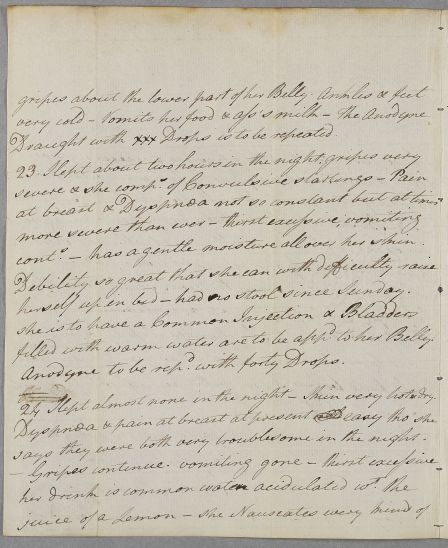 gripes about the lower part of her Belly. Ancles & feet
very cold – Vomits her food & ass's milk – The Anodyne
Draught with xxx Drops is to be repeated.
23. Slept about two hours in the night, gripes very
severe & she comp.s of Convulsive startings – Pain
at breast & Dyspnœa not so constant but at times
more severe than ever – thirst excessive, vomiting
cont.s – has a gentle moisture all over her skin.
Debility so great that she can with difficulty raise
herself up in bed – had no stool since Sunday.
she is to have a Common Injection & Bladders
filled with warm water are to be app.d to her Belly.
Anodyne to be rep.d with forty Drops.
24 Slept almost none in the night – skin very hot & dry.
Dyspnœa & pain at breast at present easy tho' she
says they were both very troublesome in the night.
– Gripes continue. vomiting gone – thirst excessive
her drink is common water acidulated wt. the
juice of a Lemon – she Nauseates every kind of